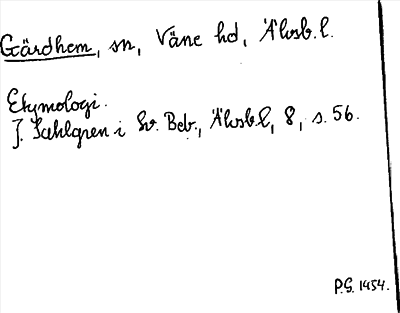 Gärdhem, sn, Väne hd, Älvsb. l.
Etymologi.
J. Sahlgren i Sv. Beb., Älvsb. l, 8, s. 56.
P.G. 1954.